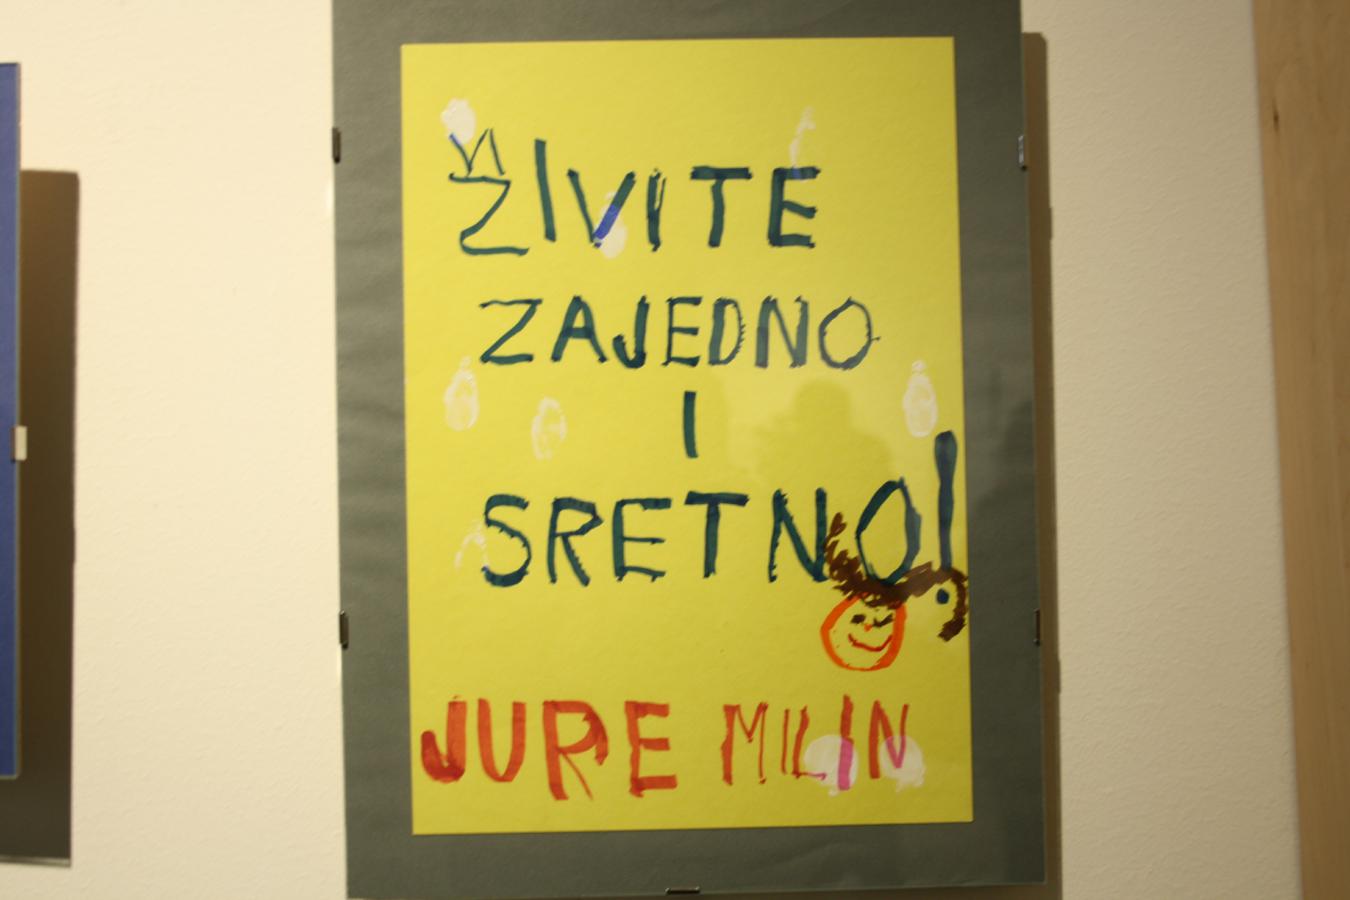 ŽIVITE
ZAJEDNO
I
SRETNO!
JURE MILIN